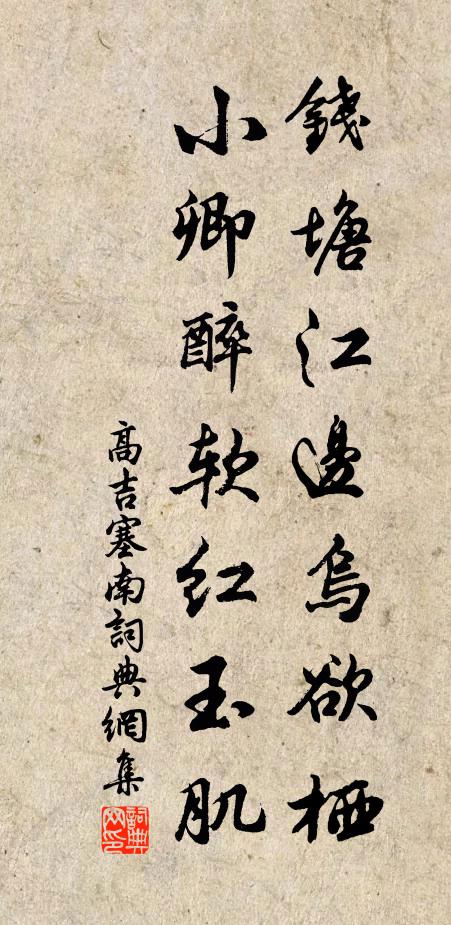 錢塘江邊烏欲栖
小卿醉软紅玉肌
高吉塞南詞典網集
詞典
網印